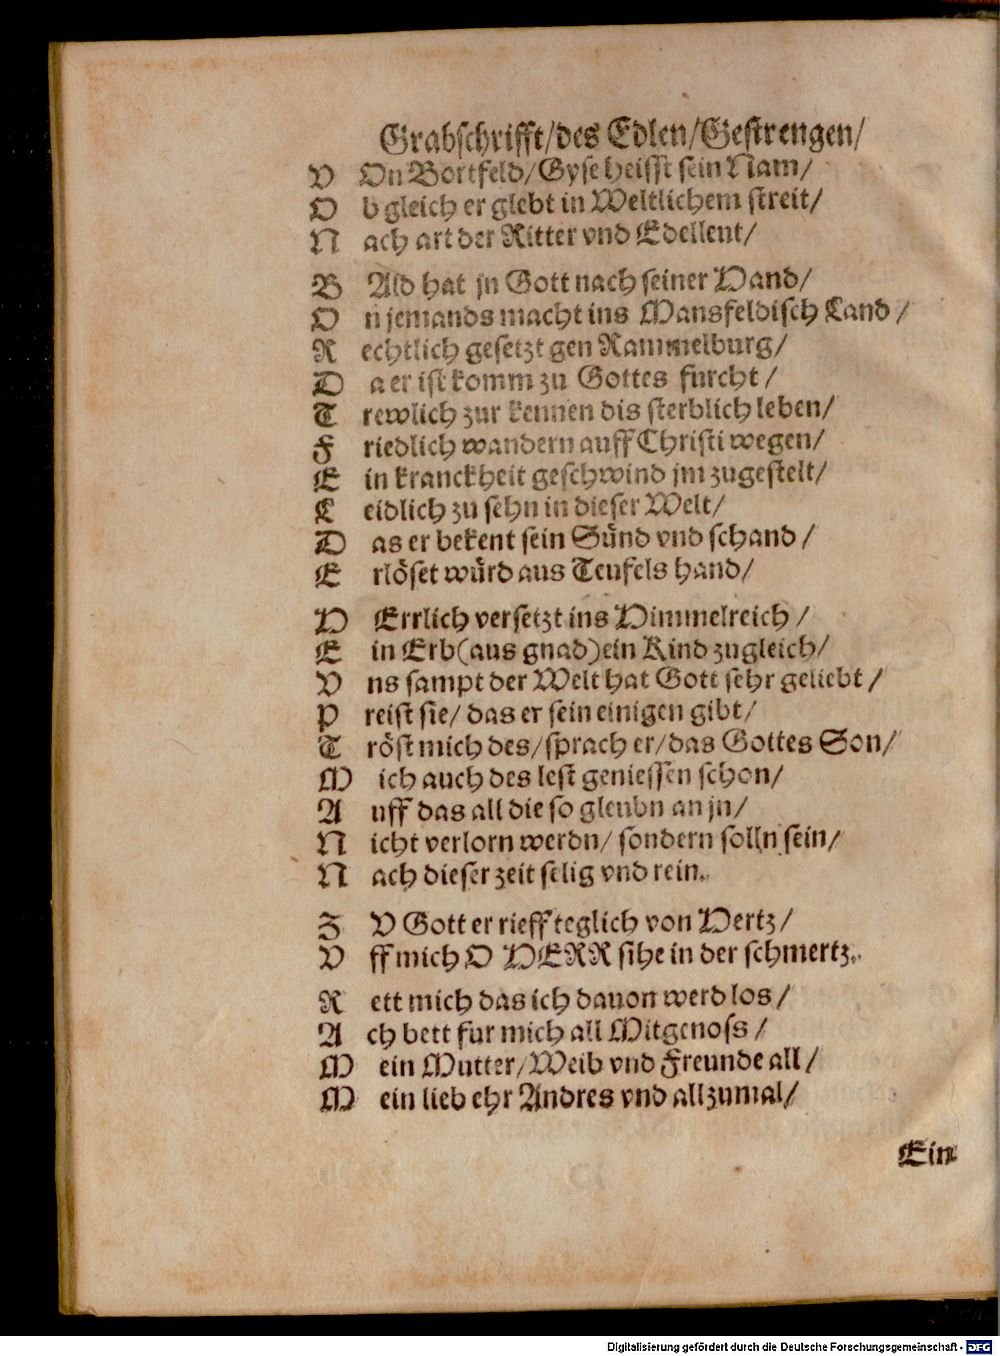 Grabschrifft/des Edlen/Gestrengen/
V On Bortfeld/Gyse heisst sein Nam/
O b gleich er glebt in Weltlichem streit/
N ach art der Ritter vnd Edelleut/
B Ald hat jn Gott nach seiner Hand/
O n jemands macht ins Mansfeldisch Land/
R echtlich gesetzt gen Rammelburg/
D a er ist komm zu Gottes furcht/
T rewlich zur kennen dis sterblich leben/
F riedlich wandern auff Christi wegen/
E in kranckheit geschwind jm zugestelt/
L eidlich zu sehn in dieser Welt/
D as er bekent sein Sünd vnd schand/
E rlöset würd aus Teufels hand/
H Errlich versetzt ins Himmelreich/
E in Erb(aus gnad)ein Kind zugleich/
V ns sampt der Welt hat Gott sehr geliebt/
P reist sie/ das er sein einigen gibt/
T röst mich des/sprach er/das Gottes Son/
M ich auch des lest geniessen schon/
A uff das all die so gleubn an jn/
N icht verlorn werdn/ sondern solln sein/
N ach dieser zeit selig vnd rein.
Z V Gott er rieff teglich von Hertz/
V ff mich O HERR sihe in der schmertz.
R ett mich das ich dauon werd los/
A ch bett fur mich all Mitgenoss/
M ein Mutter/Weib vnd Freunde all/
M ein lieb ehr Andres vnd allzumal/
Ein
Digitalisierung gefördert durch die Deutsche Forschungsgemeinschaft - DFG